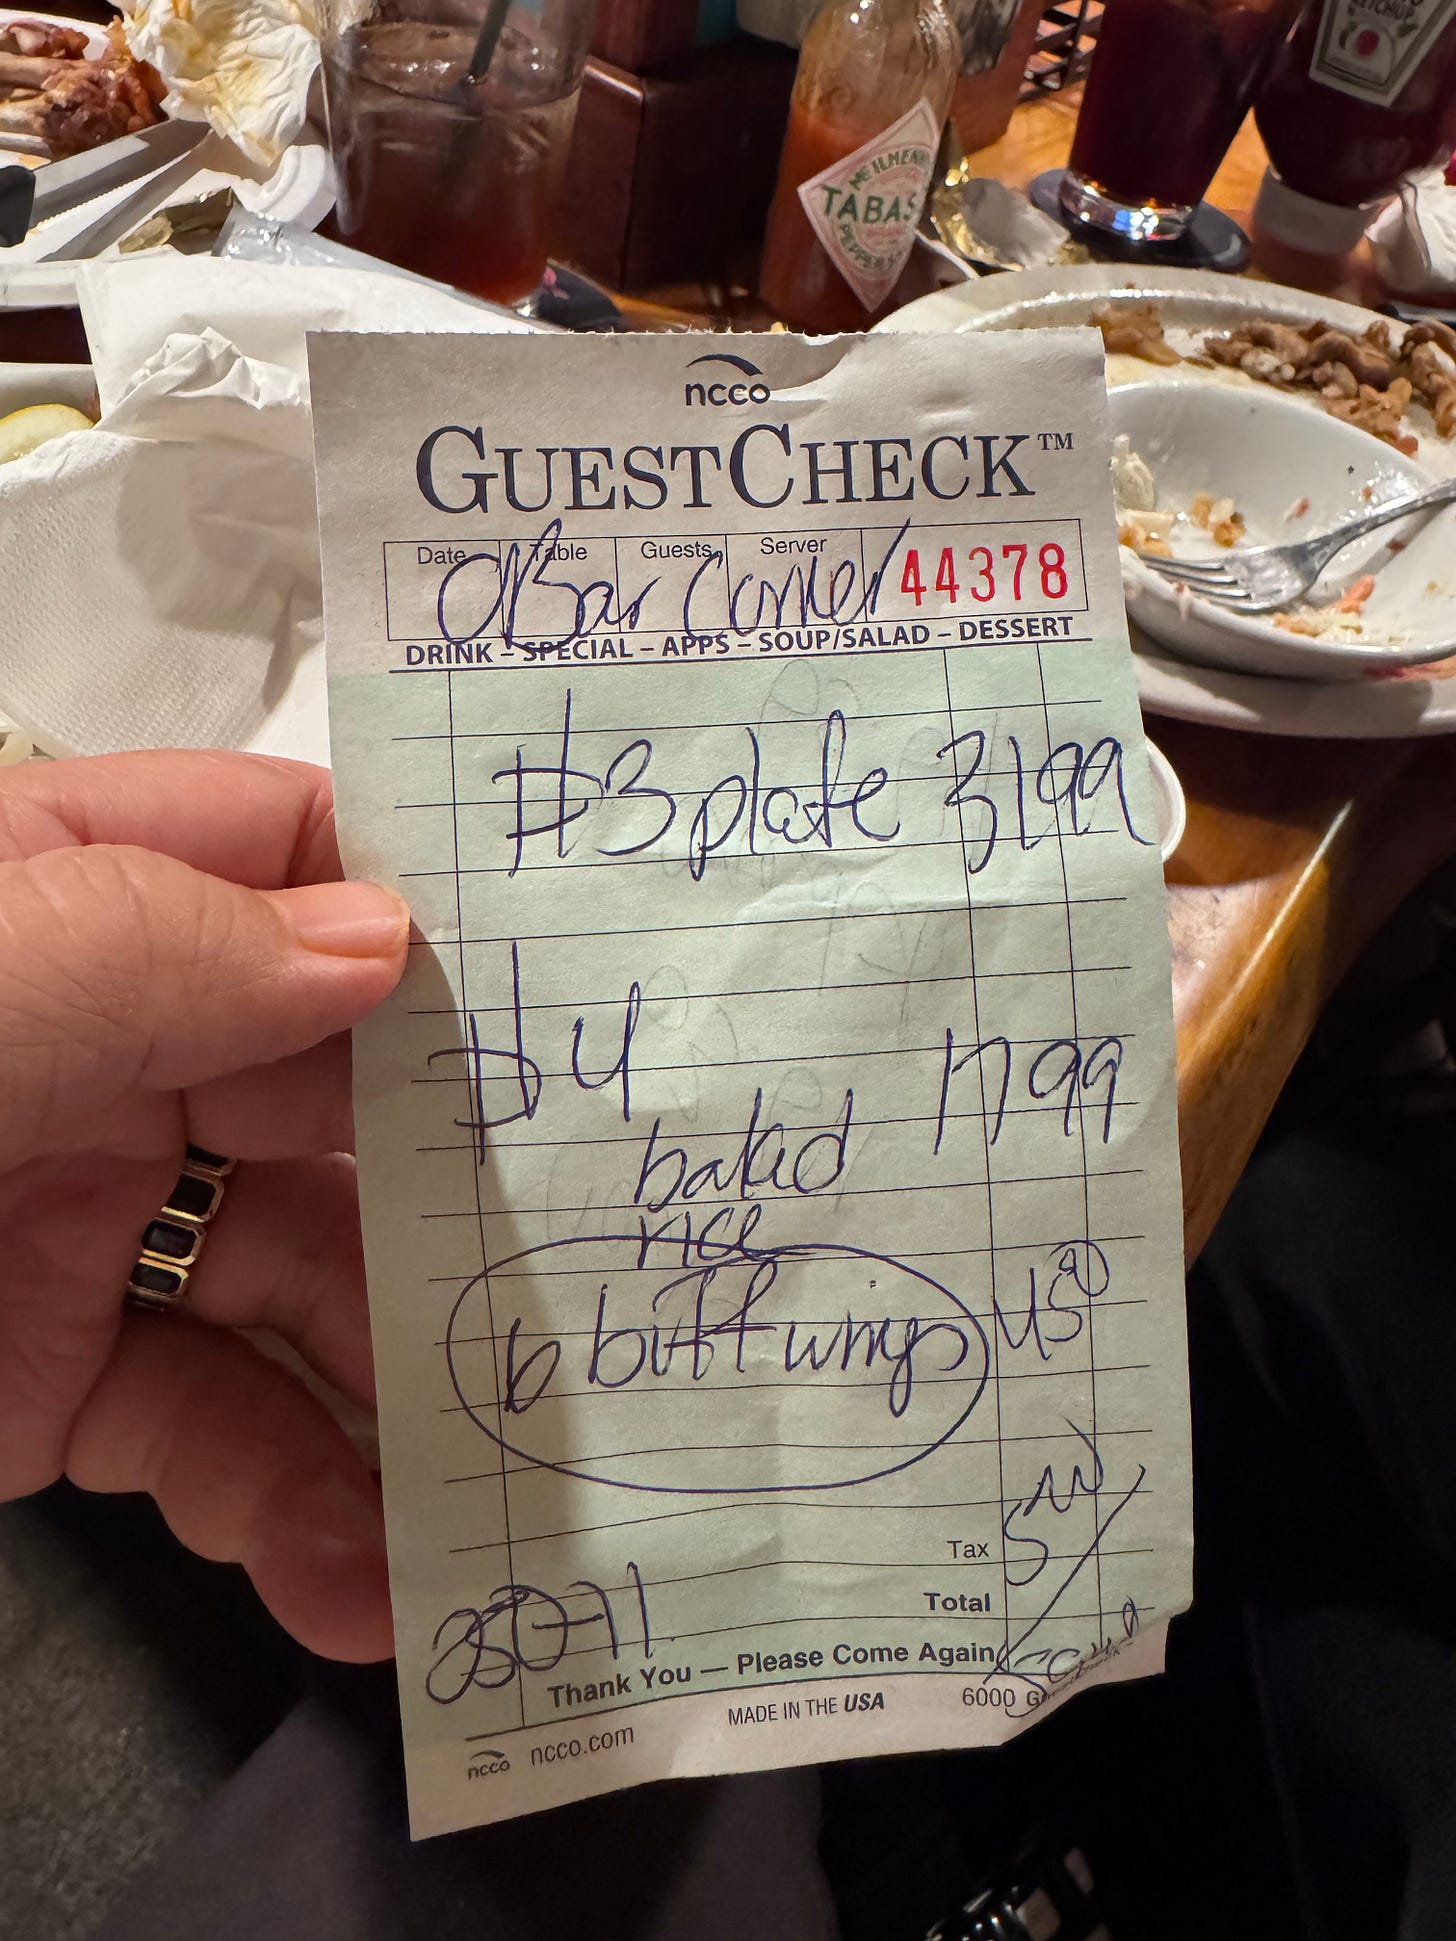 KETCHUP
McILHENNY
TABAS
PEPPER
ncco
GUESTCHECK™
Date Table Guests Server
Bar Corner
44378
DRINK – SPECIAL – APPS – SOUP/SALAD – DESSERT
#3 plate 31 99
#4 17 99
baked
rice
6 buff wings
Tax
Total
Thank You — Please Come Again
MADE IN THE USA
6000
ncco ncco.com